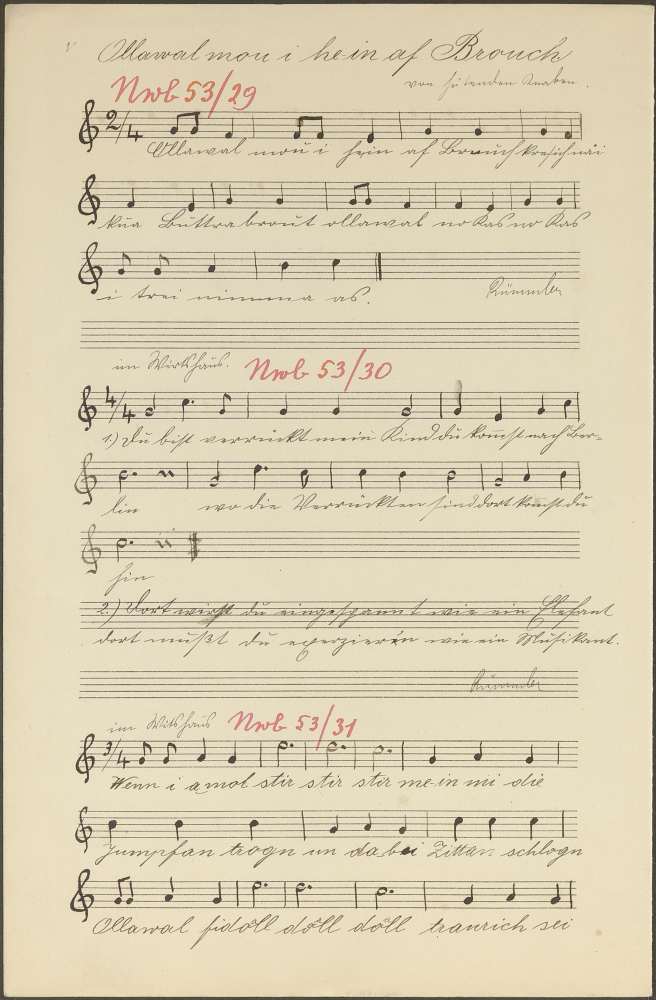 Ollawal mou i he in af Brouch
von hütenden Knaben.
Nwb 53/29
2/4
Ollawal mou i hein af Brouch kresich nái
kua Buttrabrout ollawal no Kas no Kas
i trei nimma as.
im Wirtshaus. Nwb 53/30
4/4
1.) Du bist verrückt mein Kind du kommst nach Ber-
lin wo die Verrückten sind dort kommst du
hin
2.) Dort wirst du eingespannt wie ein Elefant
dort mußt du exerzieren wie ein Musikant.
im Witshaus Nwb 53/31
3/4
Wenn i amol stir stir stir me in mi die
Jumpfan trogn un dabei Zittan schlogn
Ollawal fidöll döll döll traurich sei